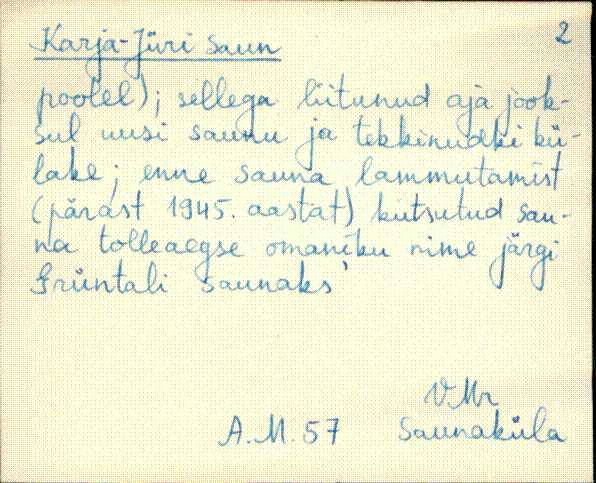 Karja-Jüri saun 2
poolel); sellega liitunud aja jook-
sul uusi saunu ja tekkinudki kü-
lake; enne sauna lammutamist
(pärast 1945. aastat) kutsutud sau-
na tolleaegse omaniku nime järgi
Grüntali saunaks'
VMr
A.M. 57 Saunaküla